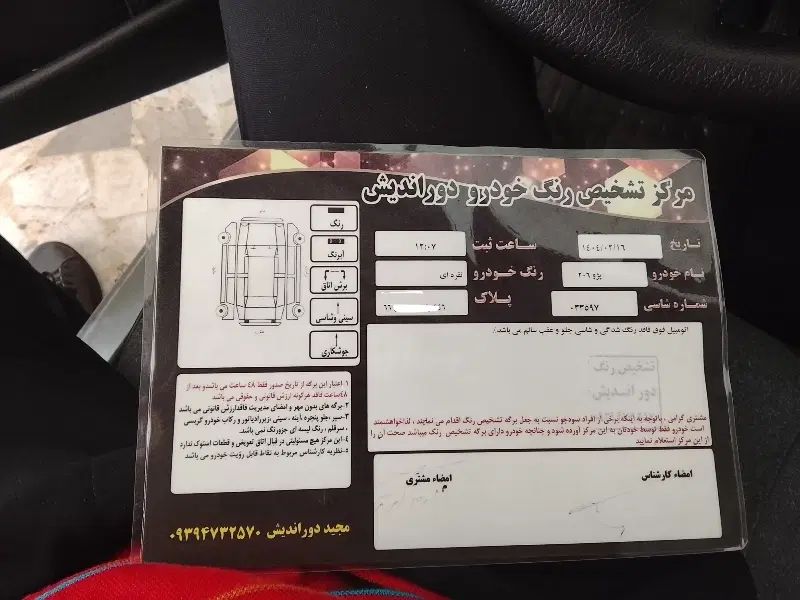 مرکز تشخیص رنگ خودرو دوراندیش
تاریخ ۱۴۰۴/۰۲/۱۶ ساعت ثبت ۱۲:۰۷
نام خودرو پژه ۲۰۶ رنگ خودرو نقره ای
شماره شاسی ۰۳۳۵۹۷ پلاک ۶۶
اتومبیل فوق فاقد رنگ شدگی و شاسی جلو و عقب سالم می باشد/.
تشخیص رنگ
دور اندیش
مشتری گرامی ، باتوجه به اینکه برخی از افراد سودجو نسبت به جعل برگه تشخیص رنگ اقدام می نمایند ، لذاخواهشمند
است خودرو فقط توسط خودتان به این مرکز آورده شود و چنانچه خودرو دارای برگه تشخیص رنگ میباشد صحت آن را
از این مرکز استعلام نمایید
امضاء کارشناس
امضاء مشتری
رنگ
آبرنگ
برش اتاق
سینی وشاسی
جوشکاری
۱. اعتبار این برگه از تاریخ صدور فقط ۴۸ ساعت می باشدو بعد از
۴۸ساعت فاقد هرگونه ارزش قانونی و حقوقی می باشد
۲-برگه های بدون مهر و امضای مدیریت فاقدارزش قانونی می باشد
۳-سپر، جلو پنجره، آینه ، سینی زیررادیاتور و رکاب خودرو گریسی
، سرقلم ، رنگ لیسه ای جزورنگ نمی باشد.
۴-این مرکز هیچ مسئولیتی در قبال اتاق تعویض و قطعات استوک ندارد
۵-نظریه کارشناس مربوط به نقاط قابل رؤیت خودرو می باشد
مجید دوراندیش ۰۹۳۹۴۷۳۲۵۷۰